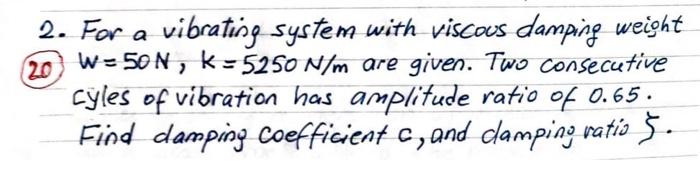 2. For a vibrating system with viscous damping weight
20 W = 50 N, k = 5250 N/m are given. Two consecutive
cyles of vibration has amplitude ratio of 0.65.
Find damping coefficient c, and damping ratio ζ.